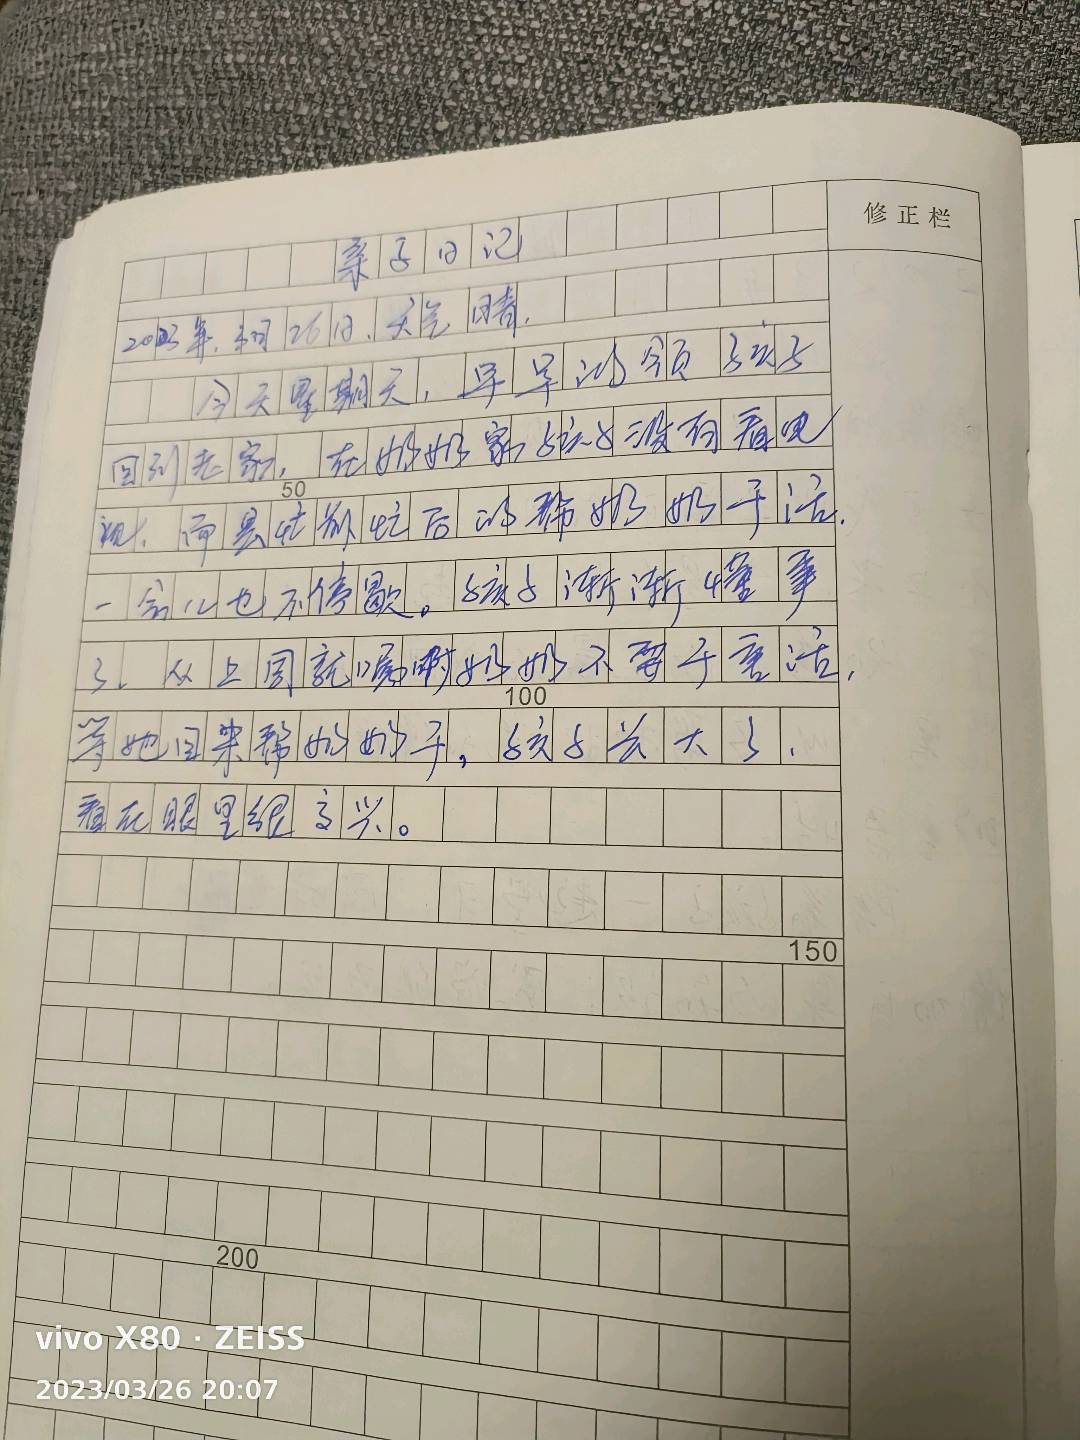 修正栏
亲子日记
2023年.3月26日.天气 晴.
今天星期天,早早的领孩子
回到老家,在奶奶家孩子没有看电
视.而是忙前忙后的帮奶奶干活.
50
一会儿也不停歇。孩子渐渐懂事
了.从上周就嘱咐奶奶不要干重活,
100
等她回来帮奶奶干,孩子长大了.
看在眼里很高兴。
150
200
vivo X80 · ZEISS
2023/03/26 20:07